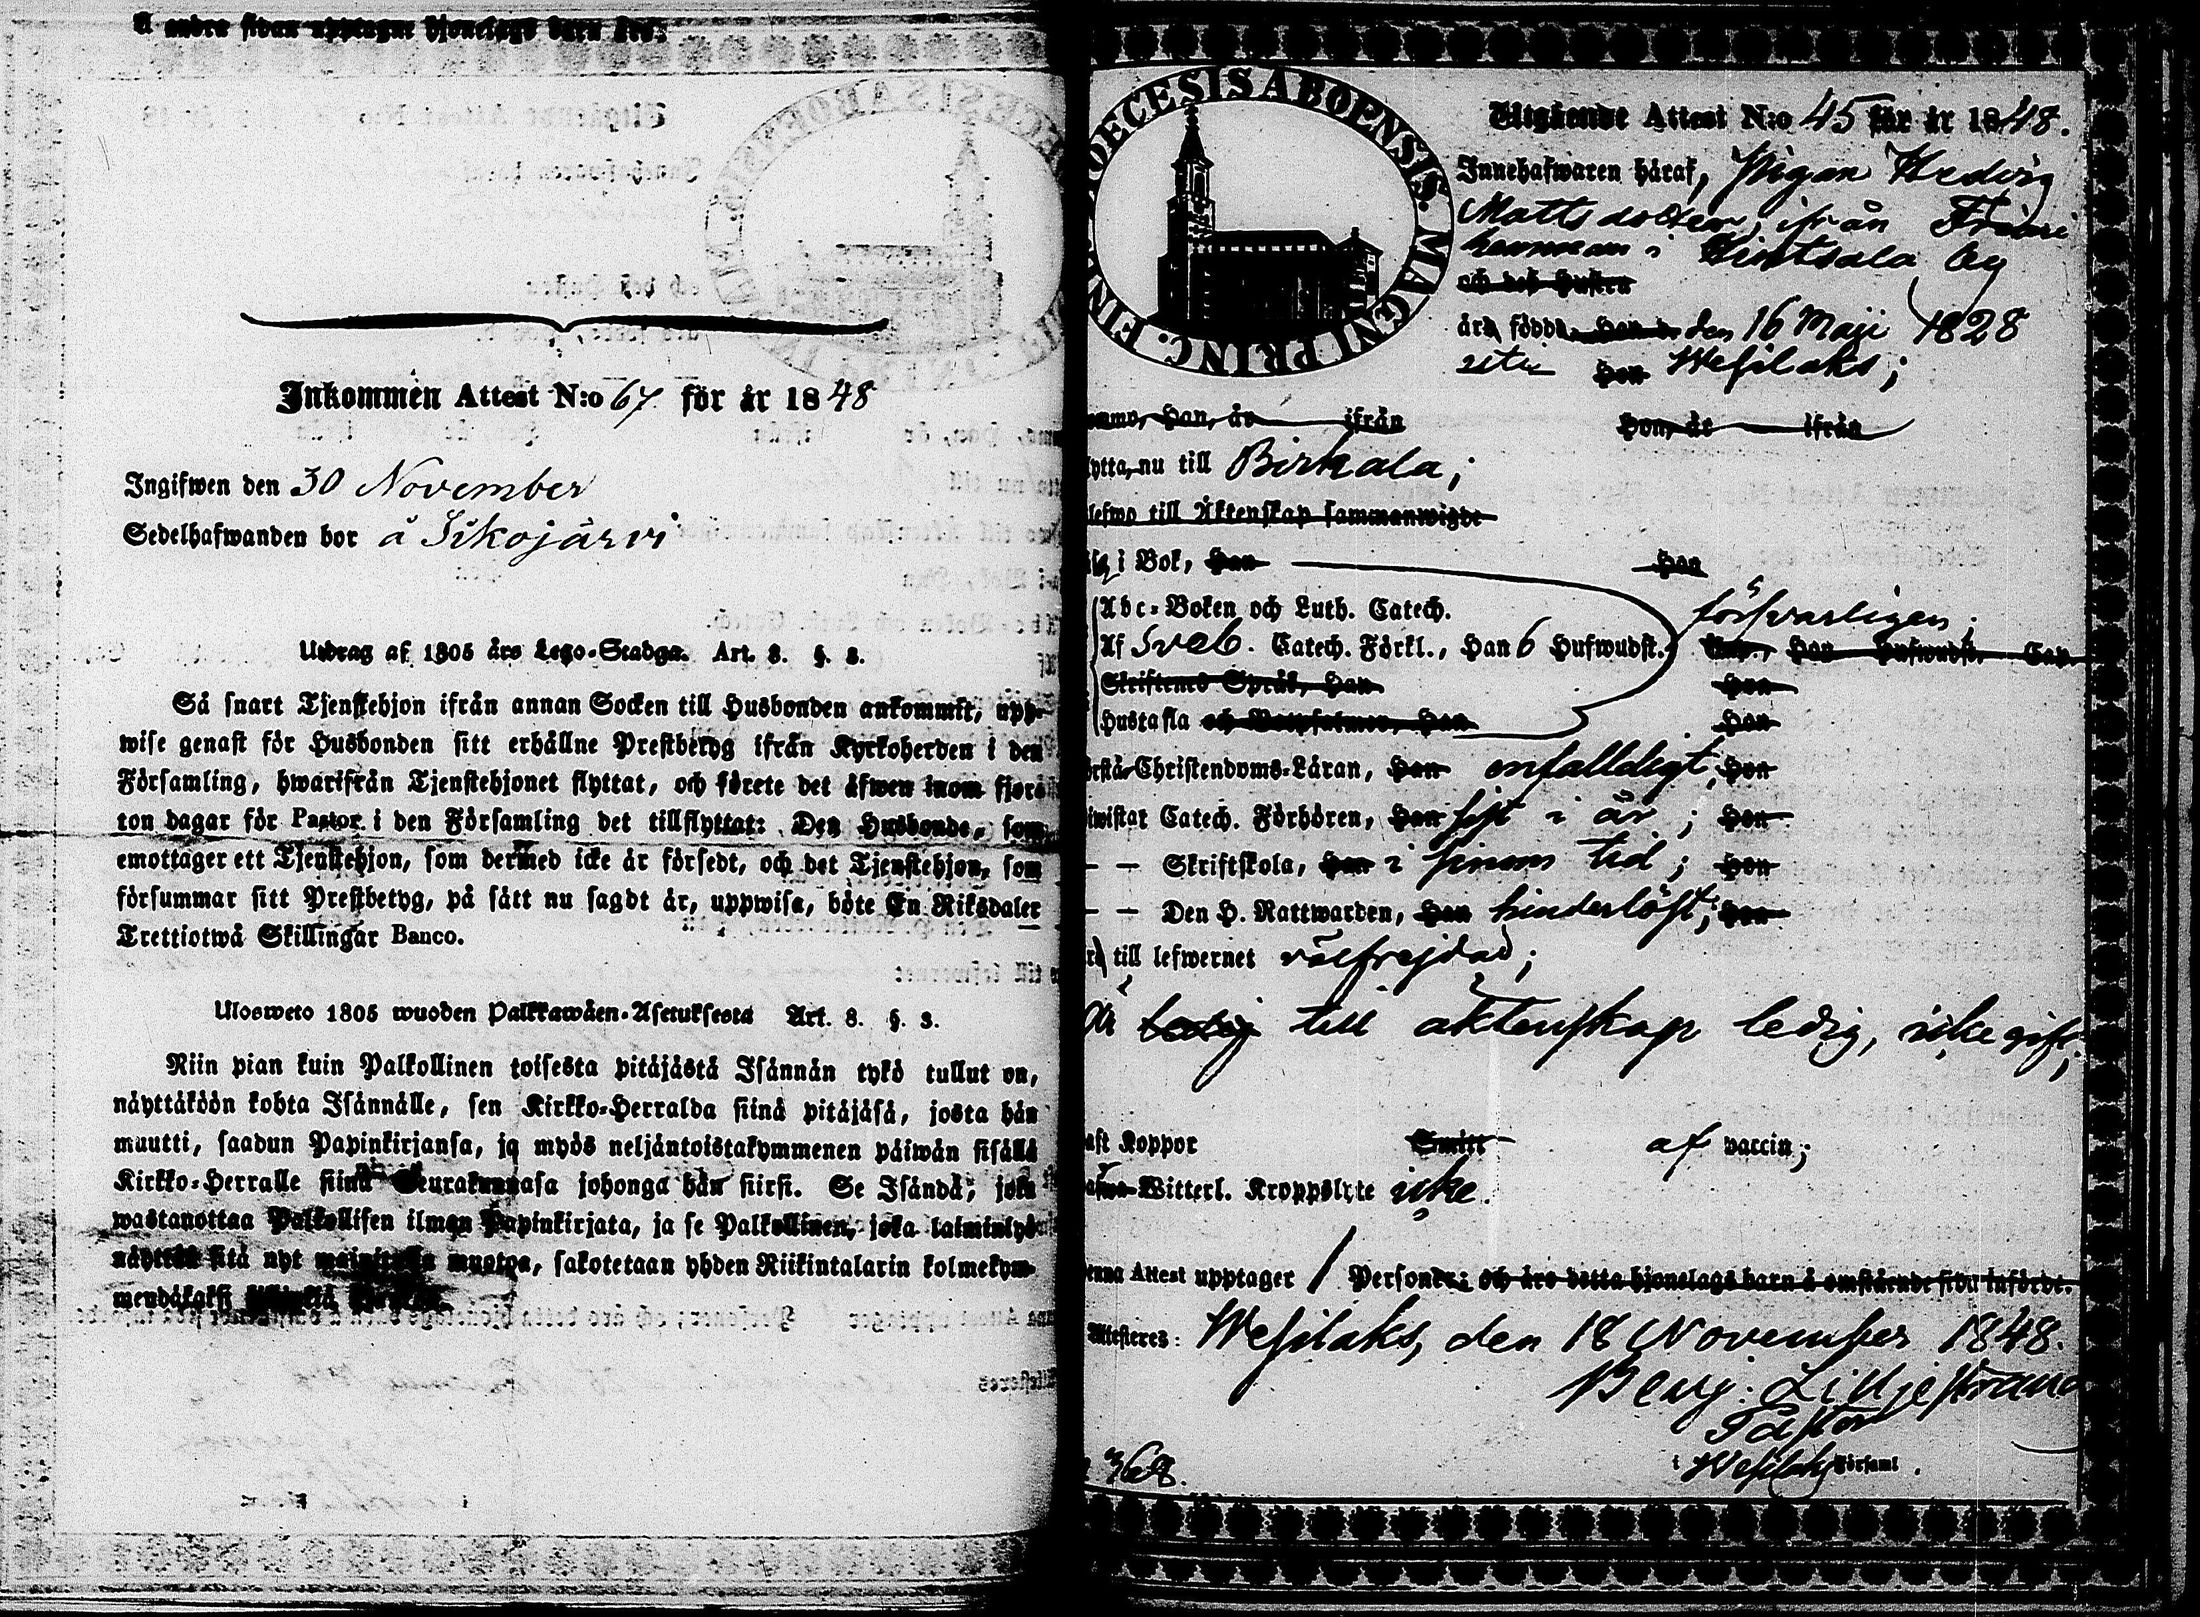 å andra sidan upptagne hjonelags barn äro:
Inkommen Attest N:o 67 för år 1848
Ingifwen den 30 November
Sedelhafwanden bor å Sikojärvi
Utdrag af 1805 års Lego-Stadga. Art. 8. §. 3.
Så snart Tjenstehjon ifrån annan Socken till Husbonden ankommit, upp-
wise genast för Husbonden sitt erhållne Prestbetyg ifrån Kyrkoherden i den
Församling, hwarifrån Tjenstehjonet flyttat, och förete det äfwen inom fjor-
ton dagar för Pastor i den Församling det tillflyttat: Den Husbonde, som
emottager ett Tjenstehjon, som dermed icke är försedt, och det Tjenstehjon, som
försummar sitt Prestbetyg, på sätt nu sagdt är, uppwisa, böte En Riksdaler
Trettiotwå Skillingar Banco.
Ulosweto 1805 wuoden Palkkawäen-Asetuksesta Art. 8. §. 3.
Niin pian kuin Palkollinen toisesta pitäjästä Isännän tykö tullut on,
näyttäköön kohta Isännälle, sen Kirkko-Herralda siinä pitäjäsä, josta hän
muutti, saadun Papinkirjansa, ja myös neljäntoistakymmenen päiwän sisällä
Kirkko-Herralle siinä Seurakunnasa johonga hän siirsi. Se Isändä, joka
wastanottaa Palkollisen ilman Papinkirjata, ja se Palkollinen, joka laiminlyö
näyttää sitä nyt mainitulla muotoa, sakotetaan yhden Riikintalarin kolmekym-
mendäkaksi
DIOECESIS ABOENSIS. MAGNI PRINC. FINL.
Utgående Attest N:o 45 för år 1848.
Innehafwaren häraf, Pigan Hedvig
Matts dotter, ifrån
i by
och des hustru
äro födde, han d. den 16 Maji 1828
uti hon Wesilaks;
komne, Han, år ifrån Hon, år ifrån
flytta, nu till Birkala;
blefwo till Äktenskap sammanwigde
i Bok, Han Hon
Abc-Boken och Luth. Catech. försvarligen;
Af Sveb. Catech. Förkl., Han 6 Hufwudst. Han Hufwudst. Cap.
Skriftenes Språk, Han Hon
Hustafla och Botpsalmer, Han Hon
förstår Christendoms-Läran, Han enfalldigt, Hon
bewistat Catech. Förhören, Han sist i år; Hon
— — Skriftskola, Han i sinom tid; Hon
— — Den H. Nattwarden, Han hinderlöst; Hon
till lefwernet välfrejdad;
är ledig till äktenskap ledig, icke gift;
haft Koppor Smitt af vaccin;
hafwa Witterl. Kroppslyte icke.
Denna Attest upptager 1 Personer; och äro detta hjonelags barn å omstående sida införde.
Attesteres: Wesilaks, den 18 November 1848.
Benj: Lilljestrand
Pastor
i Wesilaks Församl.
368.